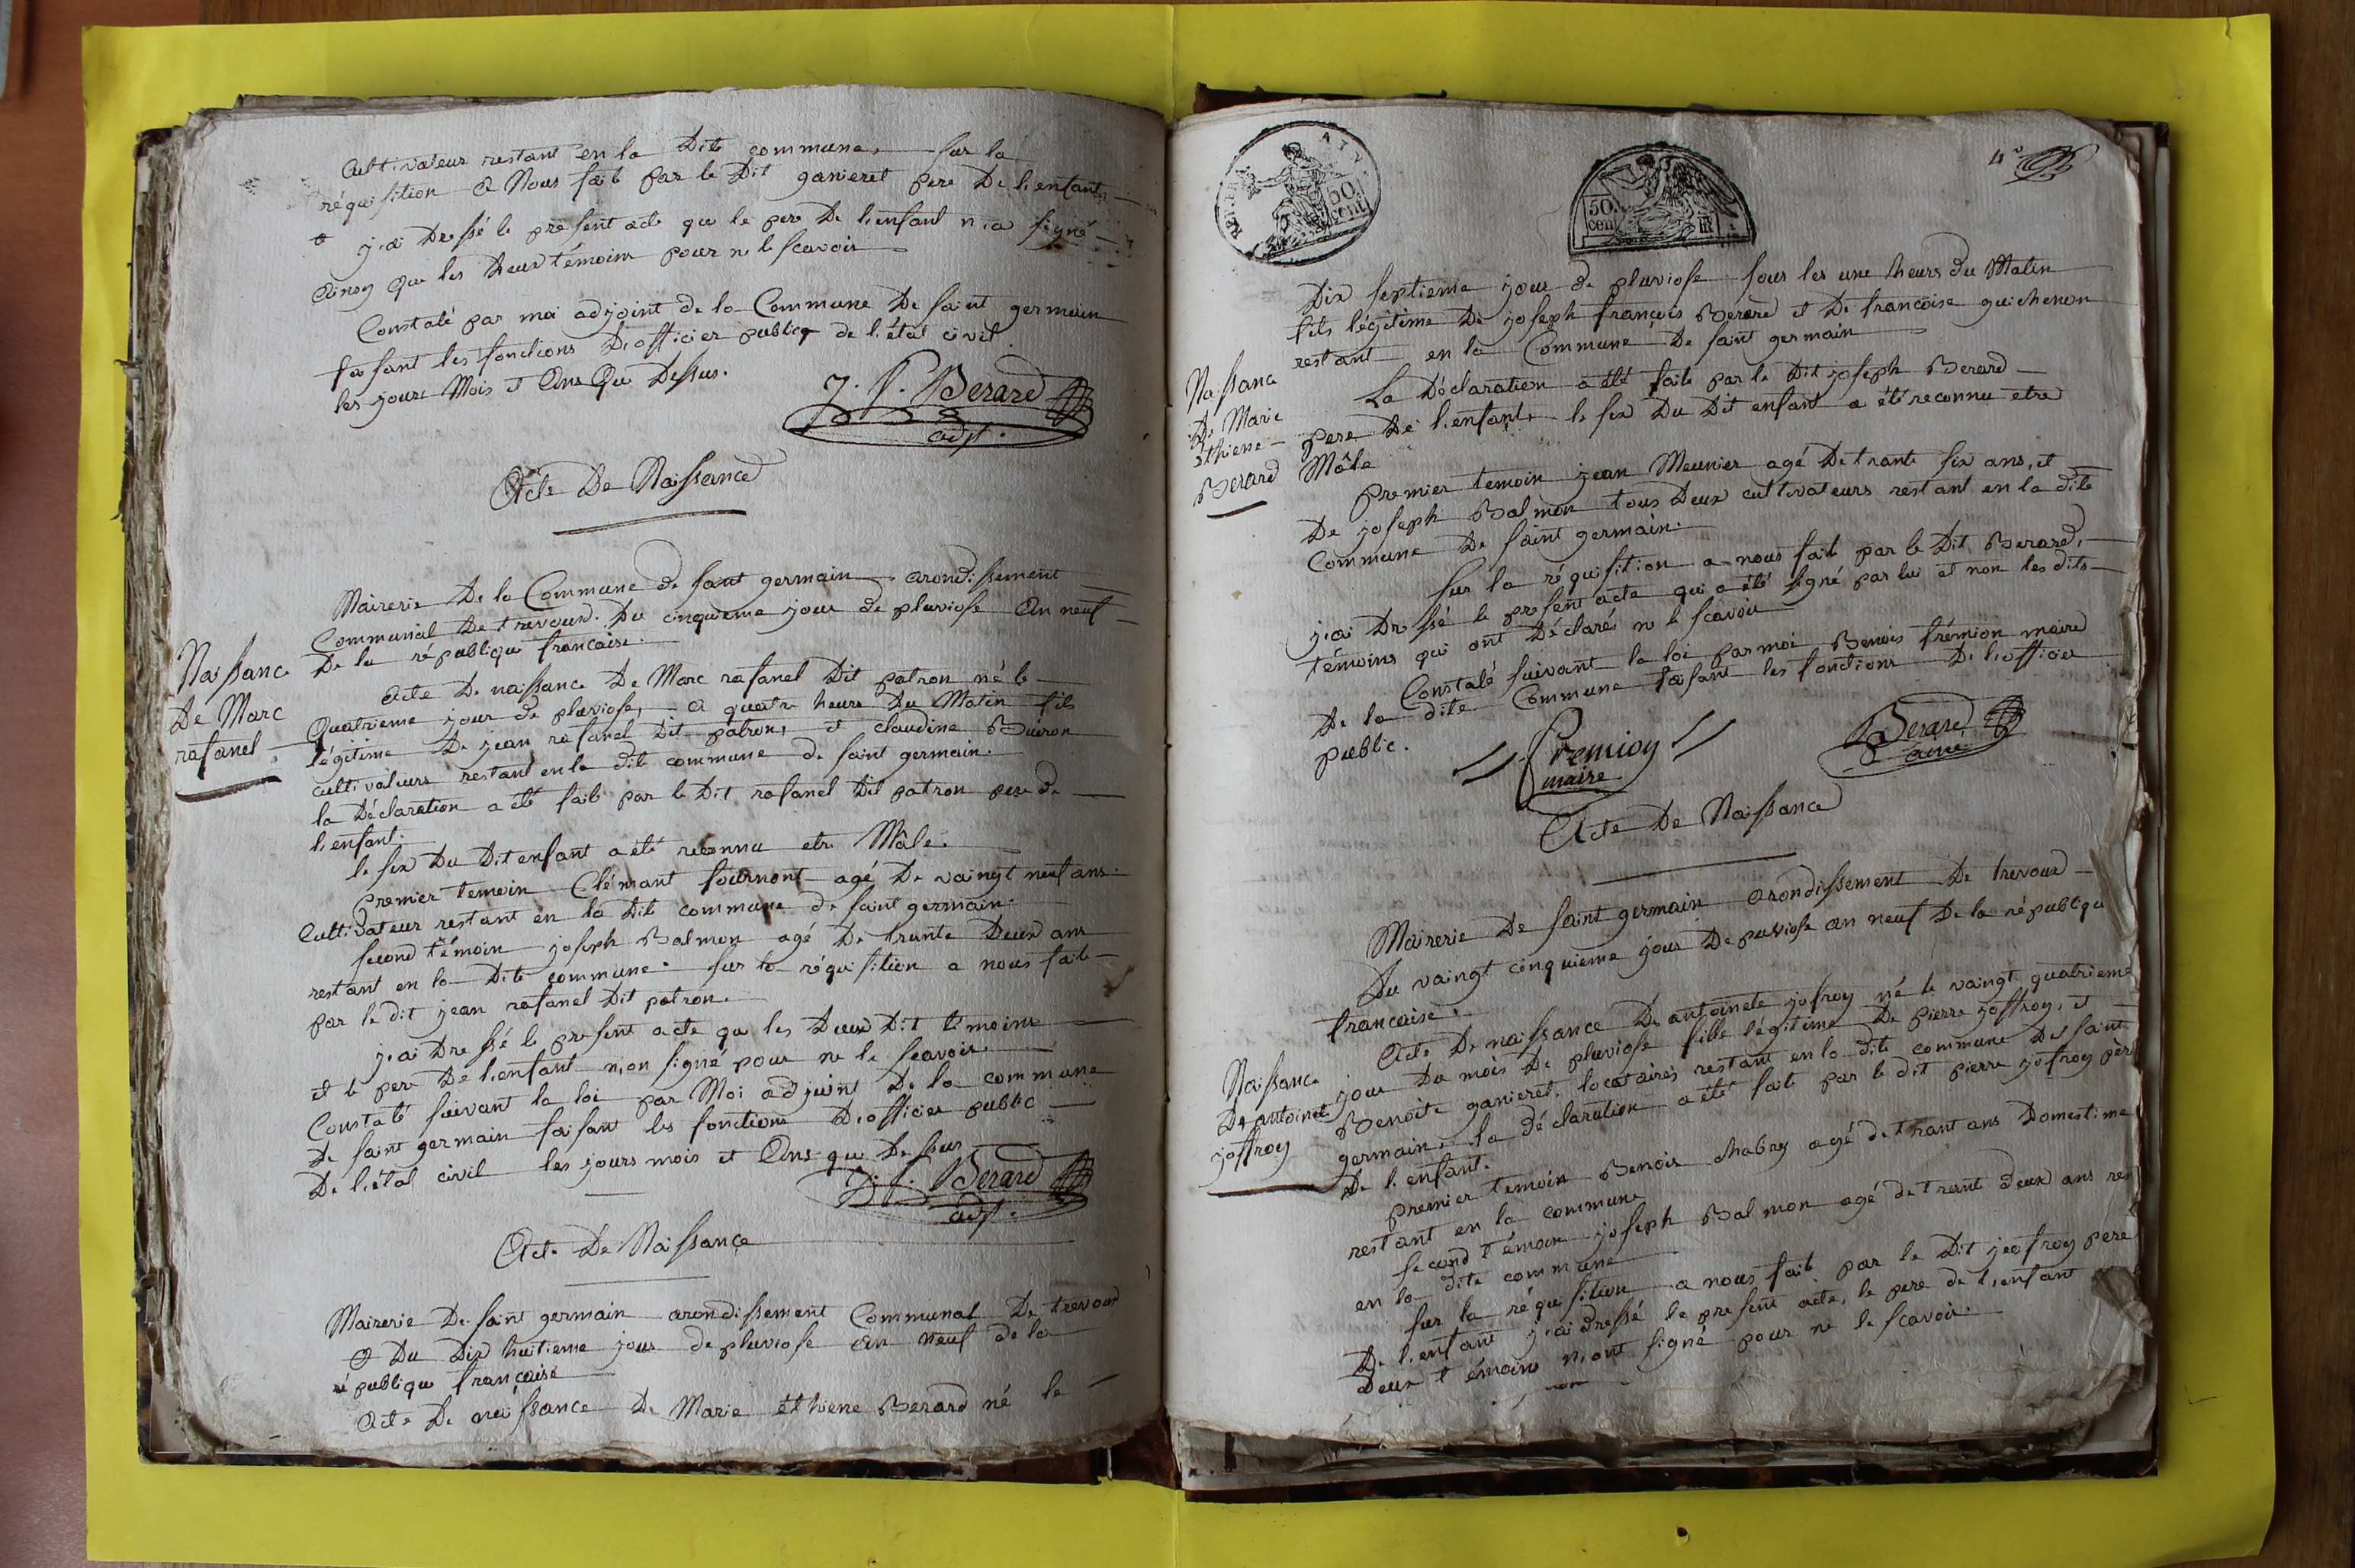 Cultivateur restant en la Dite commune, sur la
réquisition a Nous fait par le Dit ganieret pere De l'enfant,
j'ai Dressé le présent acte que le pere De l'enfant n'a signé
ainsy que les Deux témoins pour ne le scavoir
Constaté par moi adjoint de la Commune De saint germain
faisant les fonctions D'officier publiq de l'état civil
les jours Mois et Ans Que Dessus.
J. f. Berard
adjt.
Acte De Naissance
Mairerie De la Commune de saint germain arondissement
Communial De trevoux. Du cinquieme jour de pluviose An neuf
De la république francaise.
Naissance
De Marc
rafanel
Acte De naissance De Marc rafanel Dit patron né le
Quatrieme jour de pluviose, a quatre heure Du Matin fils
légitime De jean rafanel Dit patron, et claudine Buiron
cultivateurs restant en la dite commune de saint germain.
la Déclaration a été faite par le Dit rafanel Dit patron pere de
l'enfant.
le sex Du Dit enfant a été reconnu etre Mâle.
premier temoin Clémant fournont agé De vaingt neuf ans.
Cultivateur restant en la Dite commune de saint germain.
second témoin joseph Balmon agé De trante Deux ans
restant en la Dite commune. sur la réquisition a nous faite
par le dit jean rafanel Dit patron.
j'ai Dressé le present acte que les Deux Dit témoins
et le pere De l'enfant n'on signé pour ne le scavoir.
Constaté suivant la loi par Moi adjoint De la commune
De saint germain faisant les fonctions D'officier public
De l'état civil les jours mois et Ans que Dessus
J. f. Berard
adjt.
Acte De Naissance
Mairerie De saint germain arondissement Communal De trevoux
Du Dix huitieme jour de pluviose an neuf de la
république française
Acte De naissance De Marie éthiene Berard né le
50
cent
50.
cen
Dix septieme jour de pluviose sous les une heurs du Matin
fils légitime De joseph françois Berard et De francoise guichenon
restant en la Commune De saint germain
Naissance
De Marie
éthiene
Berard
La Déclaration a été faite par le Dit joseph Berard
pere De l'enfant, le sex Du Dit enfant a été reconnu etre
Mâle
premier temoin jean Meunier agé De trante six ans, et
De joseph Balmon tous Deux cultivateurs restant en la dite
Commune De saint germain.
sur la réquisition a nous fait par le Dit Berard,
j'ai Dressé le présent acte qui a été signé par lui et non les dits
témoins qui ont Déclarés ne le scavoir
Constaté suivant la loi par moi Benois frémion maire
De la dite Commune faisant les fonctions De l'officier
public.
fremion
maire
Berard
ainé
Acte De Naissance
Mairerie De saint germain arondissement De trevoux
Du vaingt cinquieme jour De puviose an neuf De la républiqu
francaise.
Naissance
De antoinete
joffroy
Acte De naissance De antoinete jofroy né le vaingt quatrieme
jour Du mois De pluviose fille légitime De pierre joffroy, et
Benoite ganieret, locataires restant en la dite commune De saint
germain. la déclaration a été faite par le dit pierre jofroy père
De l'enfant.
premier temoin Benois chabry agé de trant ans Domestime
restant en la commune
second témoin joseph Balmon agé de trente deux ans res
en la dite commune
sur la réquisition a nous fait par le Dit jeofroy père
De l'enfant j'ai dressé le present acte, le pere de l'enfant
deux témoins n'ont signé pour ne le scavoir.